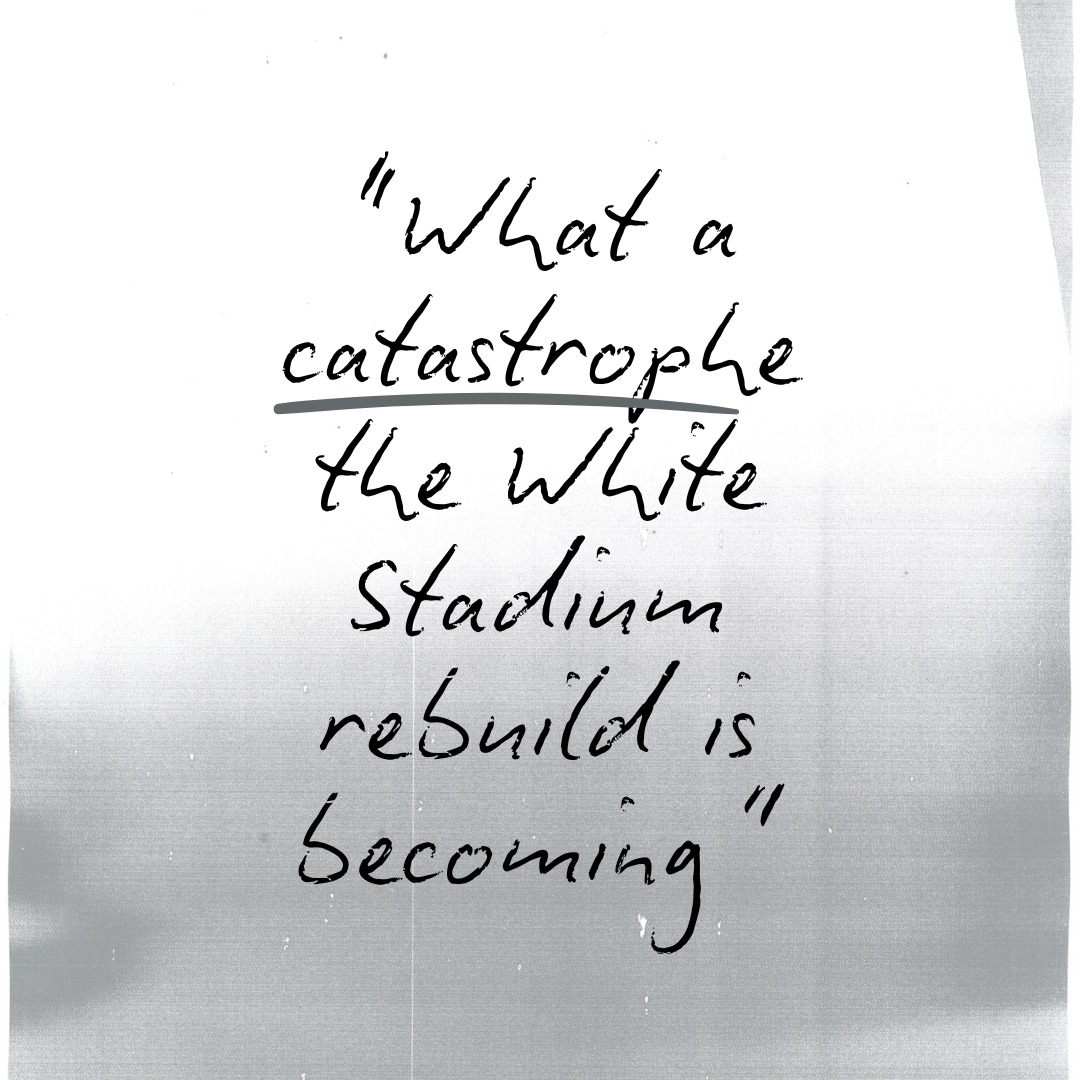 "What a
catastrophe
the White
Stadium
rebuild is
becoming"